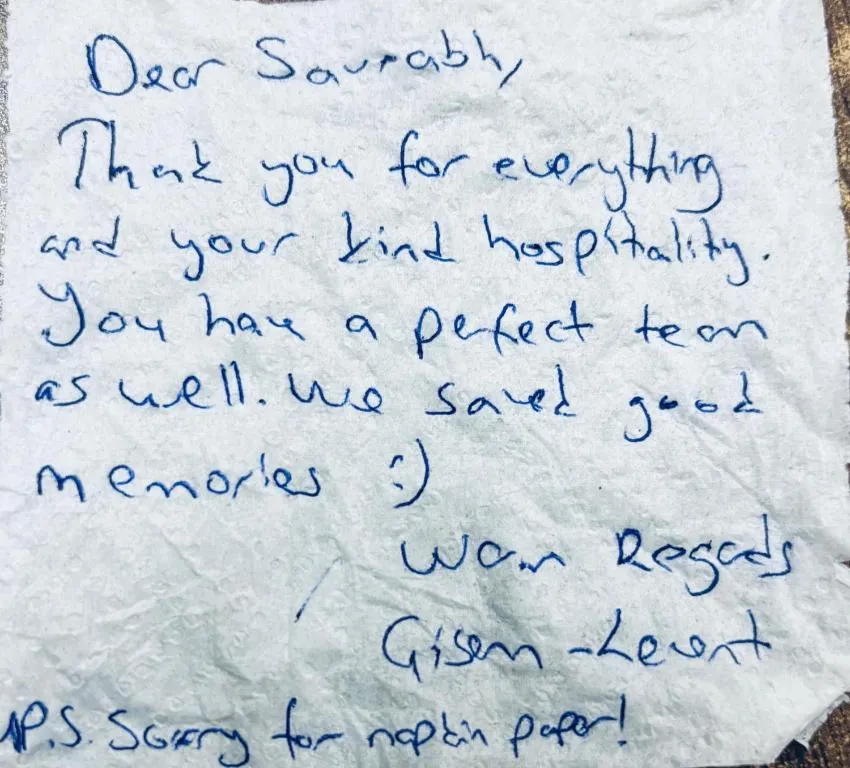 Dear Saurabh,
Thank you for everything
and your kind hospitality.
You have a perfect team
as well. We saved good
memories :)
Warm Regards
Gisem - Levent
P.S. Sorry for napkin paper!